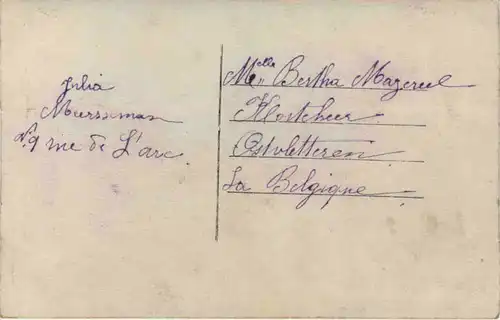 Julia
Meersseman
N.9 rue de L'arc
Melle Bertha Mazereel
Kloosterheer
Ostvletteren
La Belgique